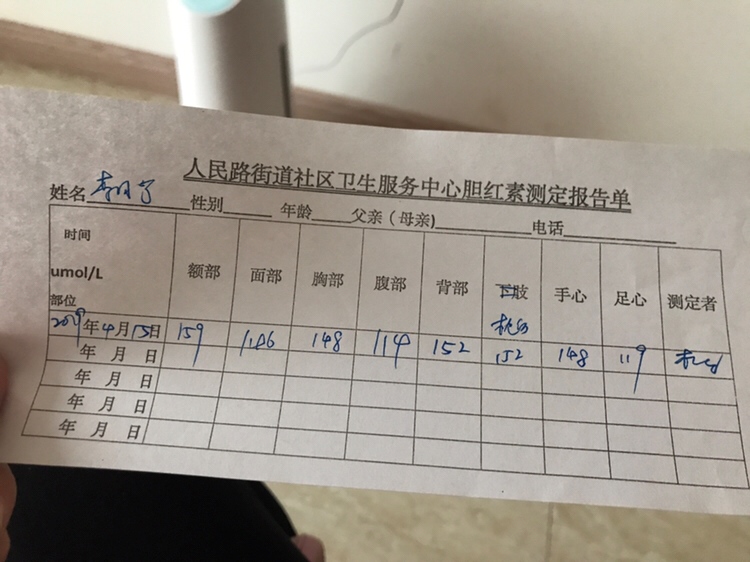 人民路街道社区卫生服务中心胆红素测定报告单
姓名 性别 年龄 父亲（母亲） 电话
时间
umol/L
部位
额部 面部 胸部 腹部 背部 肢 手心 足心 测定者
2019年4月15日 159 148 114 152 152 148 119
年 月 日
年 月 日
年 月 日
年 月 日